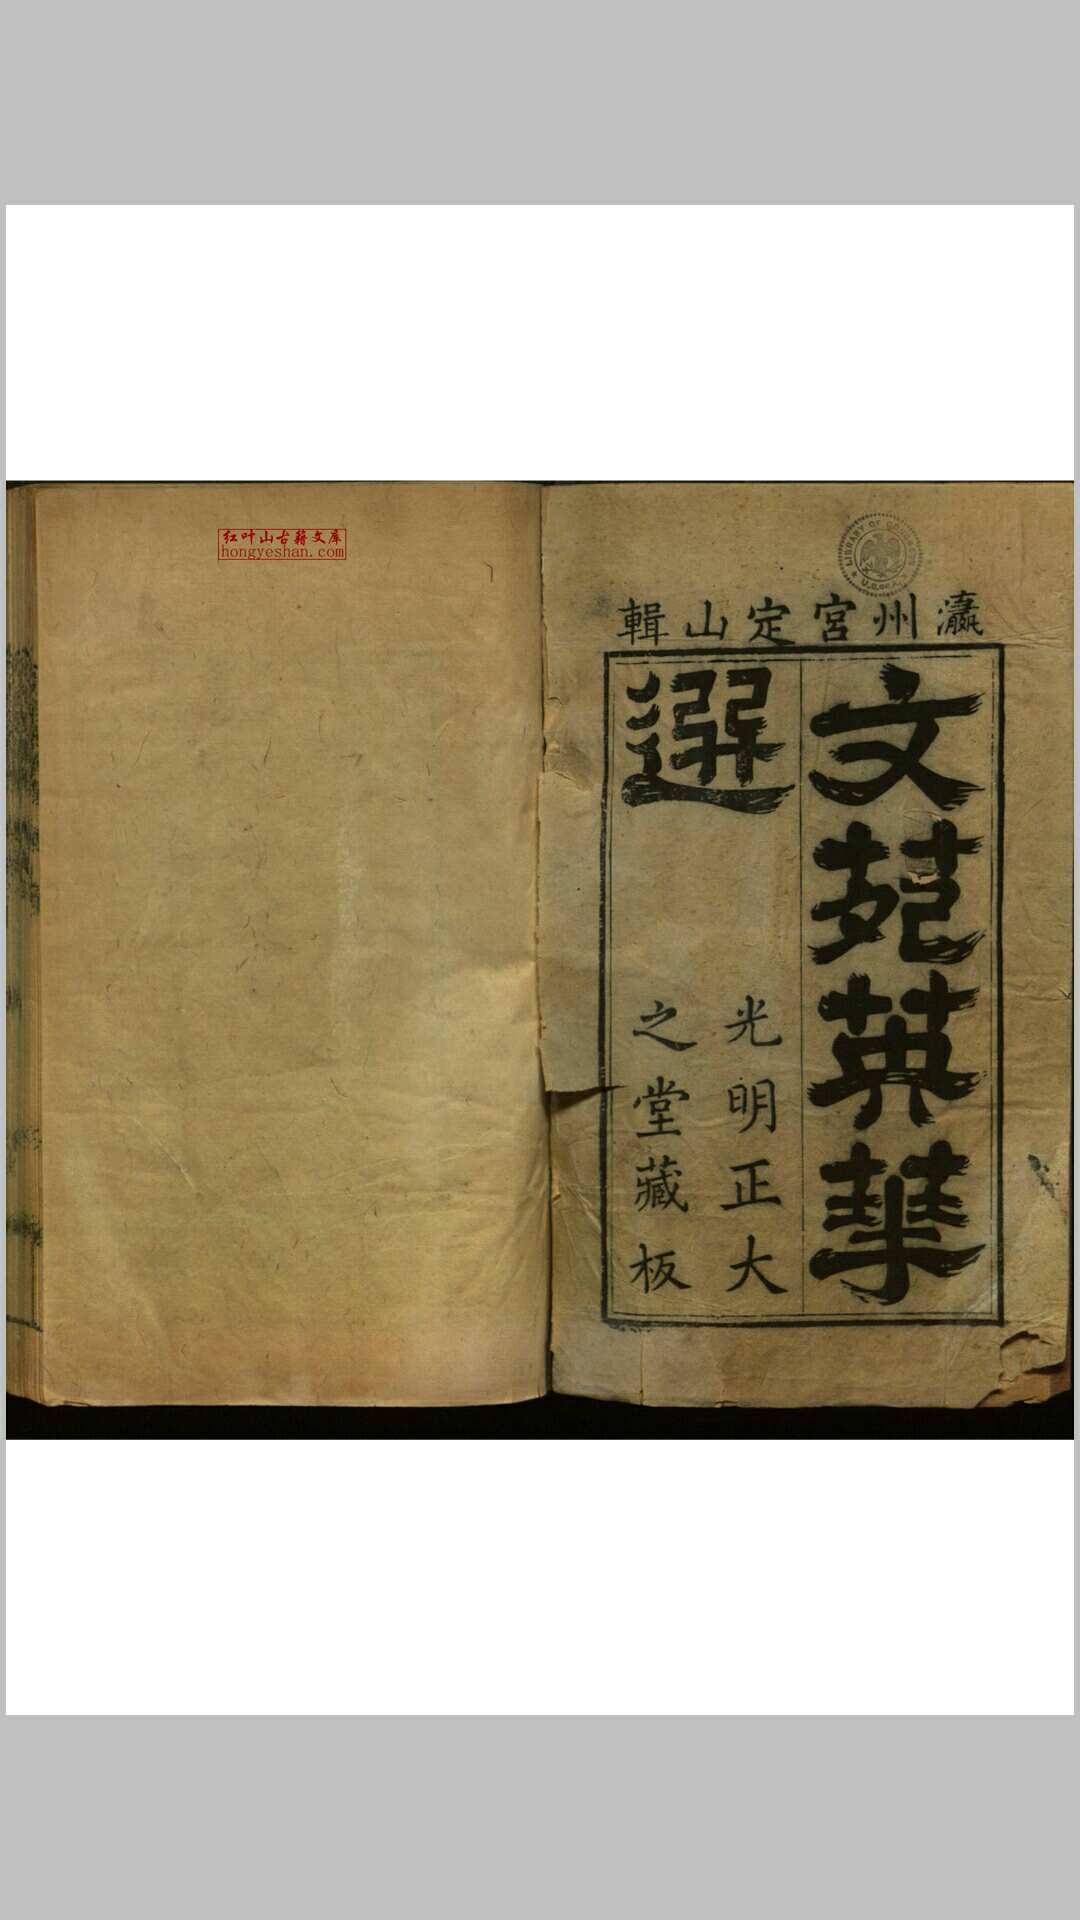 瀛州宮定山輯
文苑英華
選
光明正大
之堂藏板
红叶山古籍文库
hongyeshan.com
LIBRARY OF CONGRESS